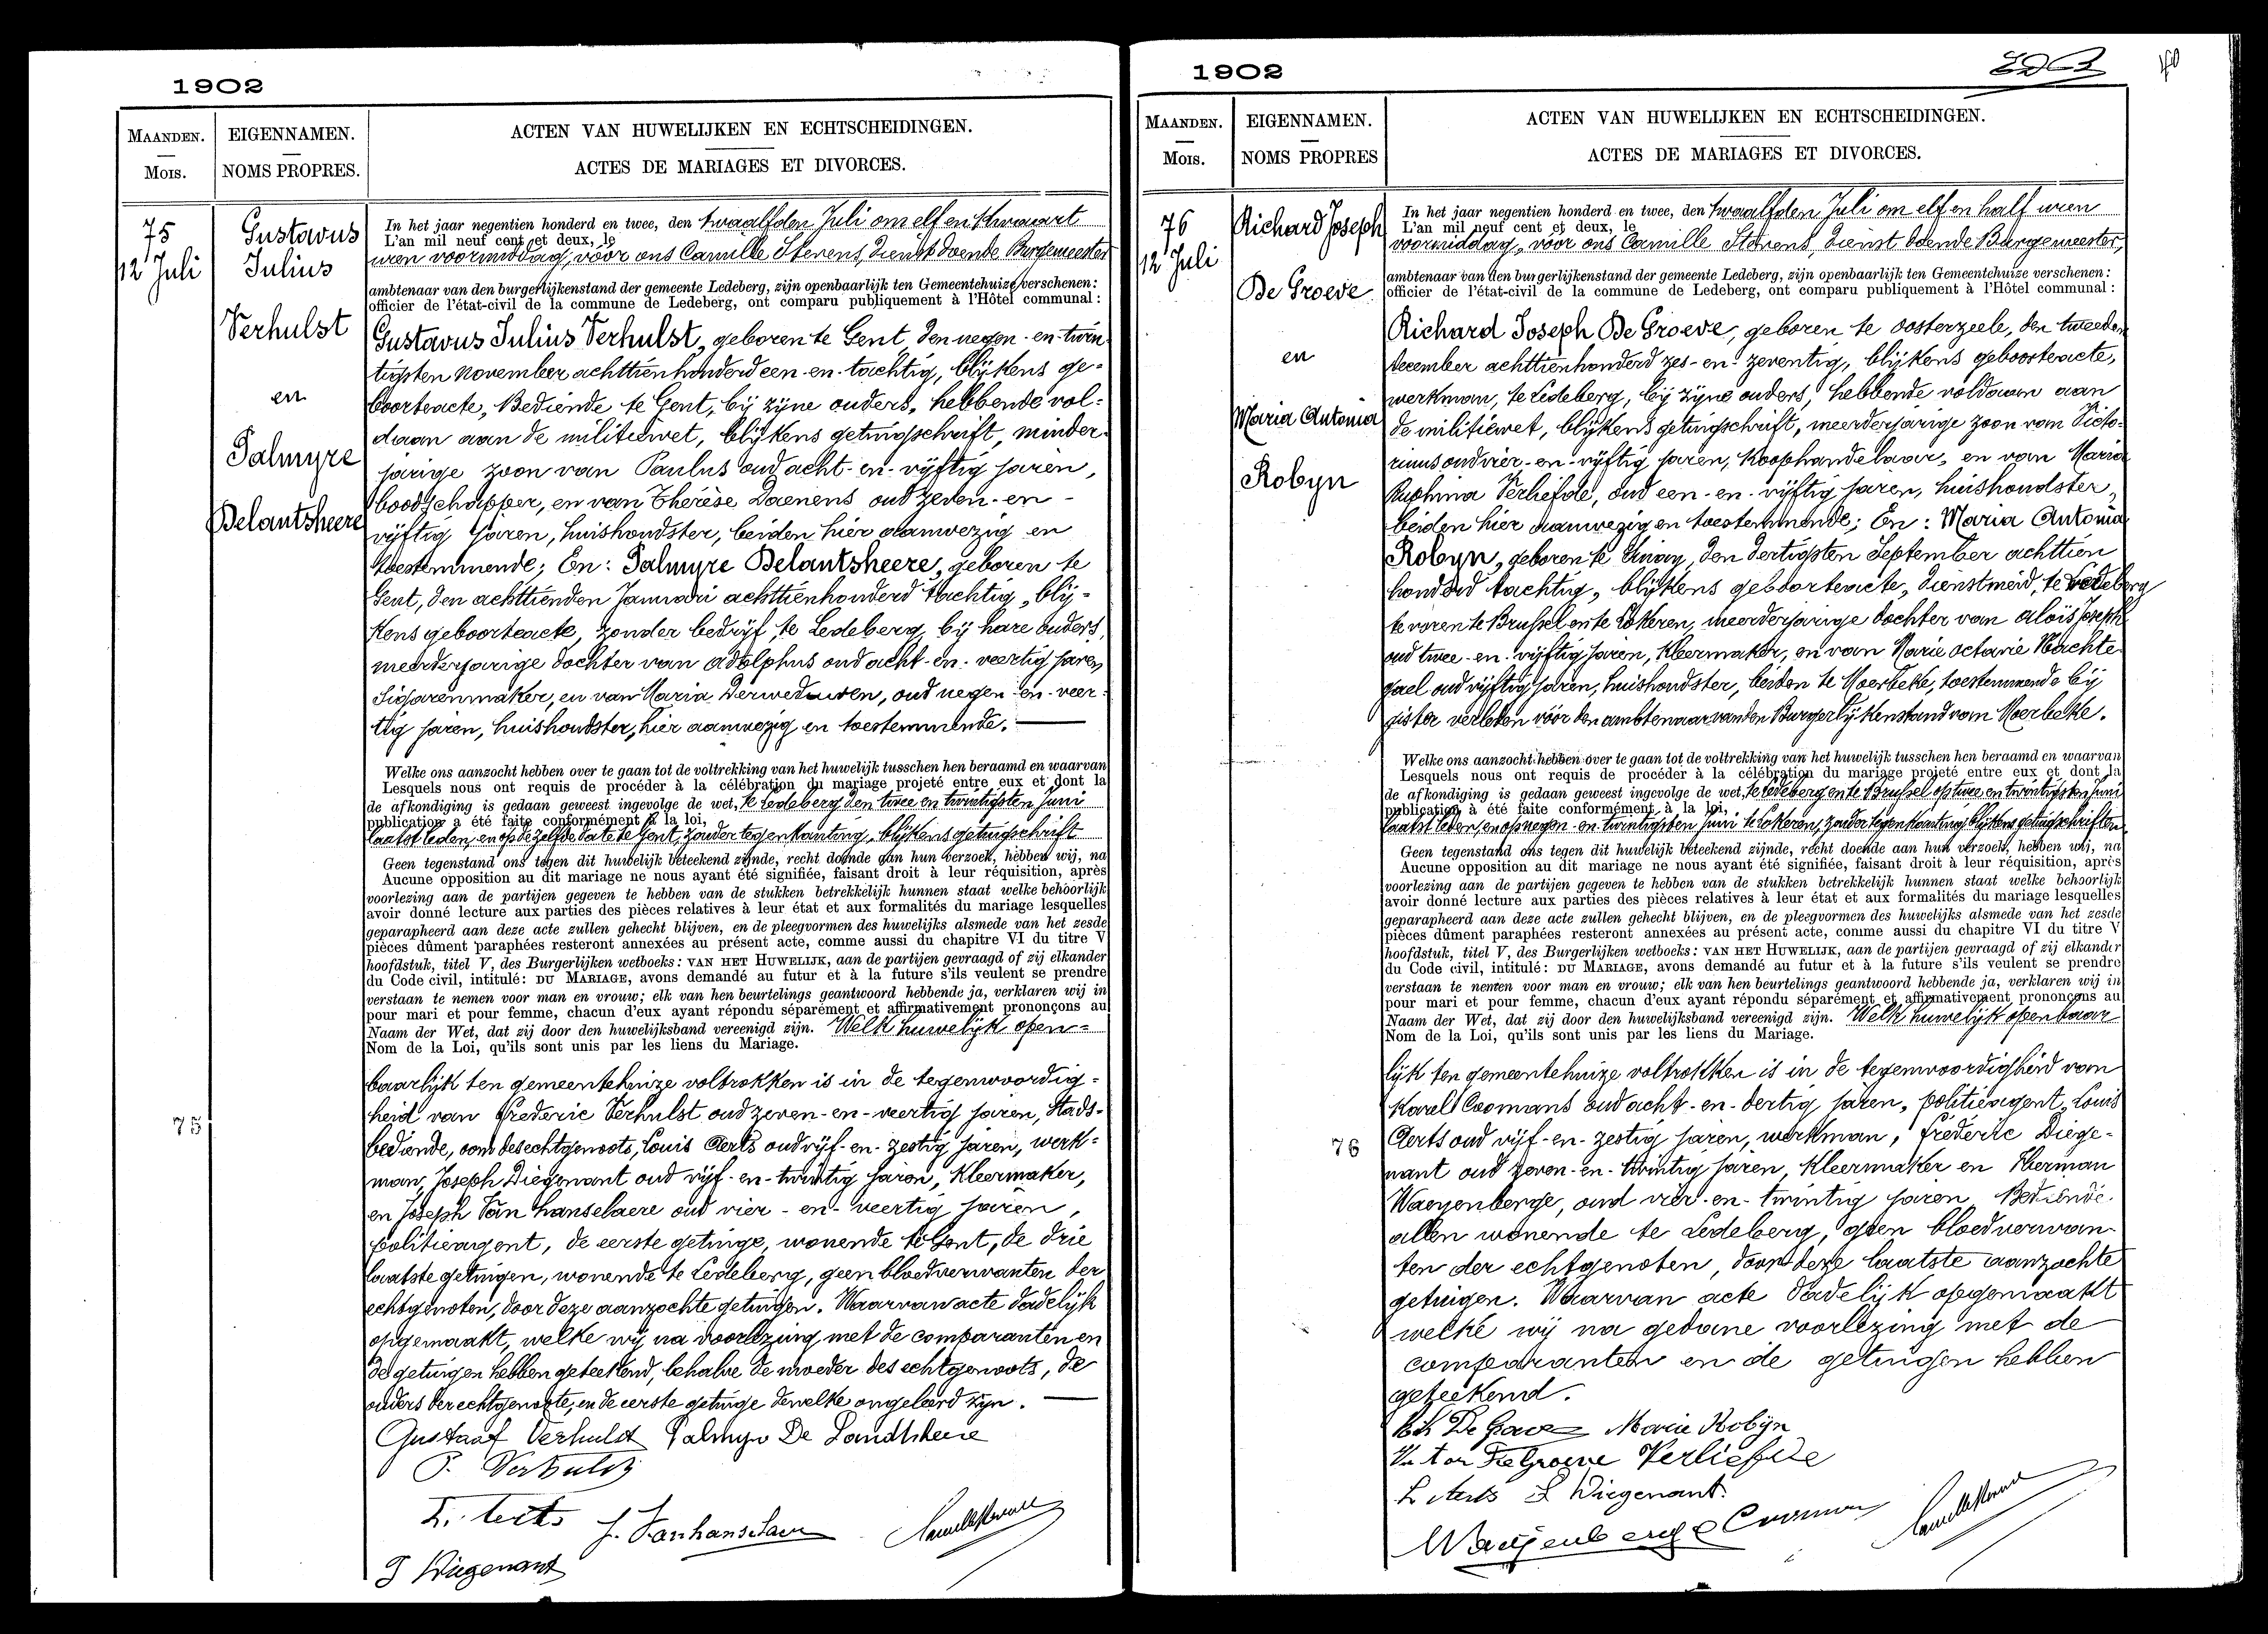 1902
MAANDEN.
Mois.
EIGENNAMEN.
NOMS PROPRES.
ACTEN VAN HUWELIJKEN EN ECHTSCHEIDINGEN.
ACTES DE MARIAGES ET DIVORCES.
75
12 Juli
Gustavus
Julius
Verhulst
en
Palmyre
Delantsheere
75
In het jaar negentien honderd en twee, den twaalfden Juli om elf en kwaart
L'an mil neuf cent et deux, le
uren voormiddag, vóór ons Camille Stevens, dienst doende Burgemeester
ambtenaar van den burgerlijkenstand der gemeente Ledeberg, zijn openbaarlijk ten Gemeentehuize verschenen:
officier de l'état-civil de la commune de Ledeberg, ont comparu publiquement à l'Hôtel communal:
Gustavus Julius Verhulst, geboren te Gent, den negen-en-twin
tigsten November achttienhonderd een-en-tachtig, blijkens ge-
boorteacte, Bediende te Gent, bij zijne ouders, hebbende vol-
daan aan de militiewet, blijkens getuigschrift, minder-
jarige zoon van Paulus oud acht-en-vijftig jaren,
boodschapper, en van Thérèse Daenens oud zeven-en-
vijftig jaren, huishoudster, beiden hier aanwezig en
toestemmende; En: Palmyre Delantsheere, geboren te
Gent, den achttienden Januari achttienhonderd tachtig, blij-
kens geboorteacte, zonder bedrijf, te Ledeberg, bij hare ouders,
meerderjarige dochter van Adolphus oud acht-en-veertig jaren
Sigarenmaker, en van Maria Derweduwen, oud negen-en-veer-
tig jaren, huishoudster, hier aanwezig en toestemmende.
Welke ons aanzocht hebben over te gaan tot de voltrekking van het huwelijk tusschen hen beraamd en waarvan
Lesquels nous ont requis de procéder à la célébration du mariage projeté entre eux et dont la
de afkondiging is gedaan geweest ingevolge de wet, te Ledeberg den twee en twintigsten Juni
publication a été faite conformément à la loi,
laatst leden, en op dezelfde date te Gent, zonder tegenkanting, blijkens getuigschrift
Geen tegenstand ons tegen dit huwelijk beteekend zijnde, recht doende aan hun verzoek, hebben wij, na
Aucune opposition au dit mariage ne nous ayant été signifiée, faisant droit à leur réquisition, après
voorlezing aan de partijen gegeven te hebben van de stukken betrekkelijk hunnen staat welke behoorlijk
avoir donné lecture aux parties des pièces relatives à leur état et aux formalités du mariage lesquelles
geparapheerd aan deze acte zullen gehecht blijven, en de pleegvormen des huwelijks alsmede van het zesde
pièces dûment paraphées resteront annexées au présent acte, comme aussi du chapitre VI du titre V
hoofdstuk, titel V, des Burgerlijken wetboeks: VAN HET HUWELIJK, aan de partijen gevraagd of zij elkander
du Code civil, intitulé: DU MARIAGE, avons demandé au futur et à la future s'ils veulent se prendre
verstaan te nemen voor man en vrouw; elk van hen beurtelings geantwoord hebbende ja, verklaren wij in
pour mari et pour femme, chacun d'eux ayant répondu séparément et affirmativement prononçons au
Naam der Wet, dat zij door den huwelijksband vereenigd zijn. Welk huwelijk open-
Nom de la Loi, qu'ils sont unis par les liens du Mariage.
baarlijk ten gemeentehuize voltrokken is in de tegenwoordig-
heid van Frederic Verhulst oud zeven-en-veertig jaren, Stads-
bediende, oom des echtgenoots, Louis Aerts oud vijf-en-zestig jaren, werk-
man, Joseph Diegenant oud vijf-en-twintig jaren, Kleermaker,
en Joseph Van Hanselaere oud vier-en-veertig jaren,
politieagent, de eerste getuige, wonende te Gent, de drie
laatste getuigen, wonende te Ledeberg, geen bloedverwanten der
echtgenoten, door deze aanzochte getuigen. Waarvan acte dadelijk
opgemaakt, welke wij na voorlezing met de comparanten en
de getuigen hebben geteekend, behalve de moeder des echtgenoots, de
ouders der echtgenoote, en de eerste getuige dewelke ongeleerd zijn.
Gustaaf Verhulst Palmyr De Landtsheere
P. Verhulst
L. Aerts J. Vanhanselaere Camille Stevens
J Diegenant
1902
MAANDEN.
Mois.
EIGENNAMEN.
NOMS PROPRES
ACTEN VAN HUWELIJKEN EN ECHTSCHEIDINGEN.
ACTES DE MARIAGES ET DIVORCES.
76
12 Juli
Richard Joseph
De Groeve
en
Maria Antonia
Robyn
76
In het jaar negentien honderd en twee, den twaalfden Juli om elf en half uren
L'an mil neuf cent et deux, le
voormiddag, vóór ons Camille Stevens, dienst doende Burgemeester,
ambtenaar van den burgerlijkenstand der gemeente Ledeberg, zijn openbaarlijk ten Gemeentehuize verschenen:
officier de l'état-civil de la commune de Ledeberg, ont comparu publiquement à l'Hôtel communal:
Richard Joseph De Groeve, geboren te Oosterzeele, den tweeden
december achttienhonderd zes-en-zeventig, blijkens geboorteacte,
werkman, te Ledeberg, bij zijne ouders, hebbende voldaan aan
de militiewet, blijkens getuigschrift, meerderjarige zoon van Victo-
rinus oud vier-en-vijftig jaren, Koophandelaar, en van Maria
Ruphina Verliefde, oud een-en-vijftig jaren, huishoudster,
beiden hier aanwezig en toestemmende; En: Maria Antonia
Robyn, geboren te Sinay, den dertigsten September achttien
honderd tachtig, blijkens geboorteacte, dienstmeid, te Ledeberg
te voren te Brussel en te Lokeren, meerderjarige dochter van Aloïs Joseph
oud twee-en-vijftig jaren, Kleermaker, en van Marie Octavie Nachte
gael oud vijftig jaren, huishoudster, beiden te Moerbeke, toestemmende bij
gister verleden vóór den ambtenaar van den Burgerlijkenstand van Moerbeke.
Welke ons aanzocht hebben over te gaan tot de voltrekking van het huwelijk tusschen hen beraamd en waarvan
Lesquels nous ont requis de procéder à la célébration du mariage projeté entre eux et dont la
de afkondiging is gedaan geweest ingevolge de wet, te Ledeberg en te Brussel op twee en twintigsten Juni
publication a été faite conformément à la loi,
laatst leden, en op negen-en-twintigsten Juni te Lokeren, zonder tegenkanting blijkens getuigschriften
Geen tegenstand ons tegen dit huwelijk beteekend zijnde, recht doende aan hun verzoek, hebben wij, na
Aucune opposition au dit mariage ne nous ayant été signifiée, faisant droit à leur réquisition, après
voorlezing aan de partijen gegeven te hebben van de stukken betrekkelijk hunnen staat welke behoorlijk
avoir donné lecture aux parties des pièces relatives à leur état et aux formalités du mariage lesquelles
geparapheerd aan deze acte zullen gehecht blijven, en de pleegvormen des huwelijks alsmede van het zesde
pièces dûment paraphées resteront annexées au présent acte, comme aussi du chapitre VI du titre V
hoofdstuk, titel V, des Burgerlijken wetboeks: VAN HET HUWELIJK, aan de partijen gevraagd of zij elkander
du Code civil, intitulé: DU MARIAGE, avons demandé au futur et à la future s'ils veulent se prendre
verstaan te nemen voor man en vrouw; elk van hen beurtelings geantwoord hebbende ja, verklaren wij in
pour mari et pour femme, chacun d'eux ayant répondu séparément et affirmativement prononçons au
Naam der Wet, dat zij door den huwelijksband vereenigd zijn. Welk huwelijk openbaar
Nom de la Loi, qu'ils sont unis par les liens du Mariage.
lijk ten gemeentehuize voltrokken is in de tegenwoordigheid van
Karel Coomans oud acht-en-dertig jaren, politieagent, Louis
Aerts oud vijf-en-zestig jaren, werkman, Fréderic Diege-
nant oud zeven-en-twintig jaren, Kleermaker en Herman
Waeyenberge, oud vier-en-twintig jaren, Bediende.
allen wonende te Ledeberg, geen bloedverwan-
ten der echtgenoten, door deze laatste aanzochte
getuigen. Waarvan acte dadelijk opgemaakt
welke wij na gedane voorlezing met de
comparanten en de getuigen hebben
geteekend.
Rch De Groeve Marie Robijn
Victor De Groeve Verliefde
L Aerts F Diegenant
Waeyenberge Coomans Camille Stevens